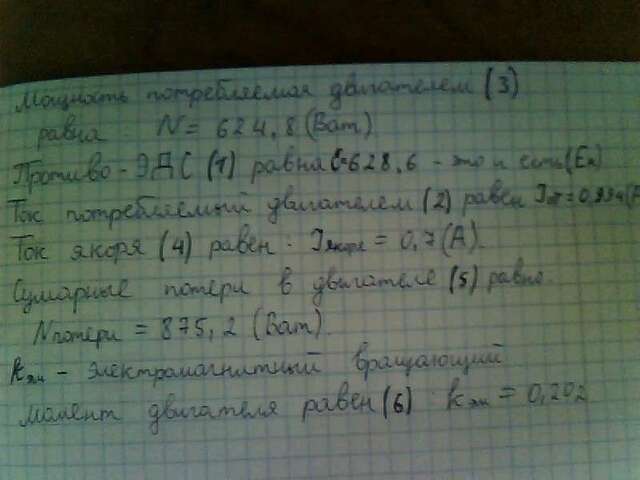 Мощность потребляемая двигателем (3)
равна: N = 624,8 (Ват)
Противо-ЭДС (1) равна E=628,6 - это и есть (Eя)
Ток потребляемый двигателем (2) равен = 0,994(А
Ток якоря (4) равен. Iякоря = 0,7(А).
Сумарные потери в двигателе (5) равно.
Nпотери = 875,2 (Ват).
kэм - электромагнитный вращающий
момент двигателя равен (6) kэм = 0,202